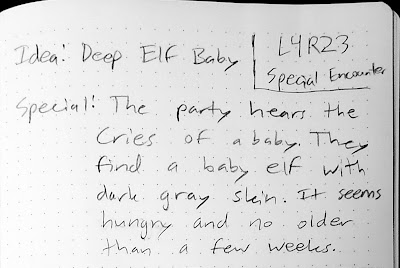 Idea: Deep Elf Baby
L4R23
Special Encounter
Special: The party hears the
cries of a baby. They
find a baby elf with
dark gray skin. It seems
hungry and no older
than a few weeks.